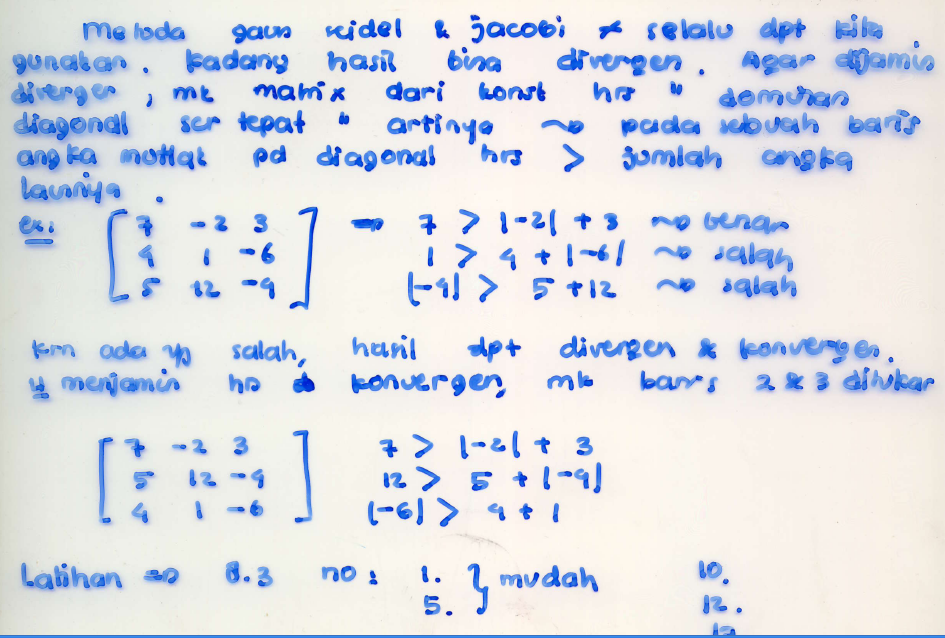 Metoda gaus seidel & jacobi ≠ selalu dpt kita
gunakan. Kadang hasil bisa divergen. Agar dijamin
divergen, mk matrix dari konst hrs " dominan
diagonal ser tepat " artinya ~> pada sebuah baris
angka mutlak pd diagonal hrs > jumlah angka
lainnya.
ex: [ 7 -2 3 ] => 7 > |-2| + 3 ~> benar
4 1 -6 1 > 4 + |-6| ~> salah
5 12 -4 |-4| > 5 + 12 ~> salah
krn ada yg salah, hasil dpt divergen & konvergen.
u menjamin hsl konvergen, mk baris 2 & 3 ditukar
[ 7 -2 3 ] 7 > |-2| + 3
5 12 -4 12 > 5 + |-4|
4 1 -6 |-6| > 4 + 1
Latihan => 8.3 no : 1. } mudah 10.
5. 12.